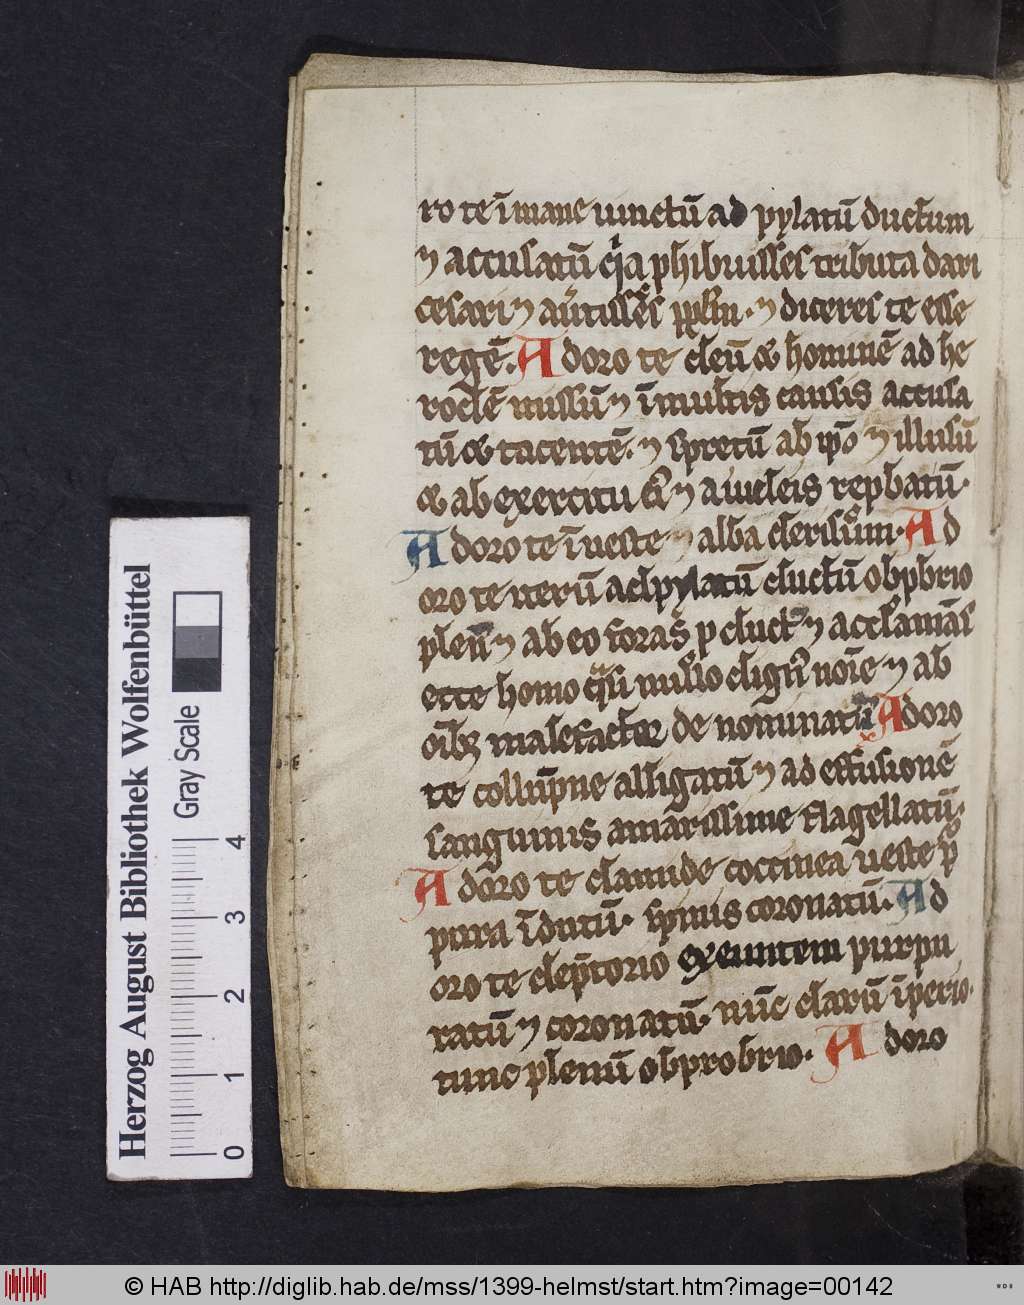 ro te ī mane uinctū ad pylatū ductum
⁊ accusatū qͥa phibuisses tributa dari
cesari ⁊ ⁊ diceres te esse
regē. Adoro te deū & hominē ad he
rodē missū ⁊ ī multis causis accusa
tū & tacentē. ⁊ spretū ab ip̄o ⁊ illusū
& ab exercitu ⁊ a iudeis rep̱batū.
Adoro te ī ueste ⁊ alba derisum. Ad
oro te iterū ad pylatū ductū obp̱brio
plenū ⁊ ab eo foras p̱ductū ⁊ acclamās
ecce homo qͣsi nullo dignū noīe ⁊ ab
oībꝫ malefactor de nominatū Adoro
te collūpne alligatū ⁊ ad effusionē
sanguinis amarissime flagellatū.
Adoro te clamide coccinea ueste pͬ
pura īdutū. spinis coronatū. Ad
oro te de p̄torio exeuntem purpu
ratū ⁊ coronatū. nūc clarū īperio.
tunc plenū obprobrio. Adoro
Herzog August Bibliothek Wolfenbüttel
Gray Scale
0 1 2 3 4
© HAB http://diglib.hab.de/mss/1399-helmst/start.htm?image=00142